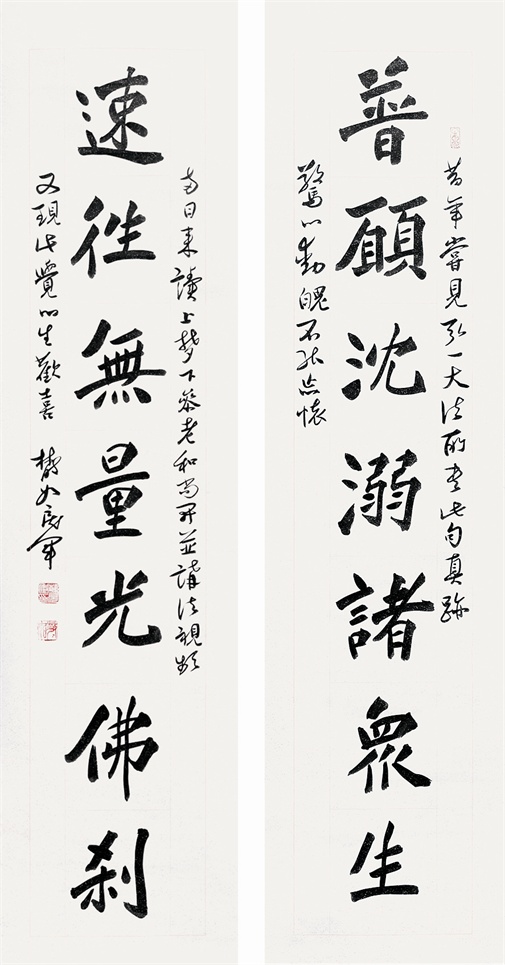 昔年嘗見弘一大法師書此句真跡
普願沈溺諸眾生
驚心動魄不能忘懷
日來讀上夢下參老和尚開並講法視頻
速往無量光佛刹
又現此覺心生歡喜